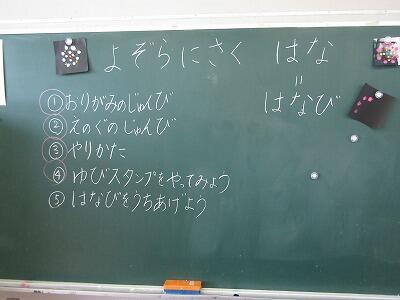 よぞらにさく はな
〃
はなび
①おりがみのじゅんび
②えのぐのじゅんび
③やりかた
④ゆびスタンプをやってみよう
⑤はなびをうちあげよう